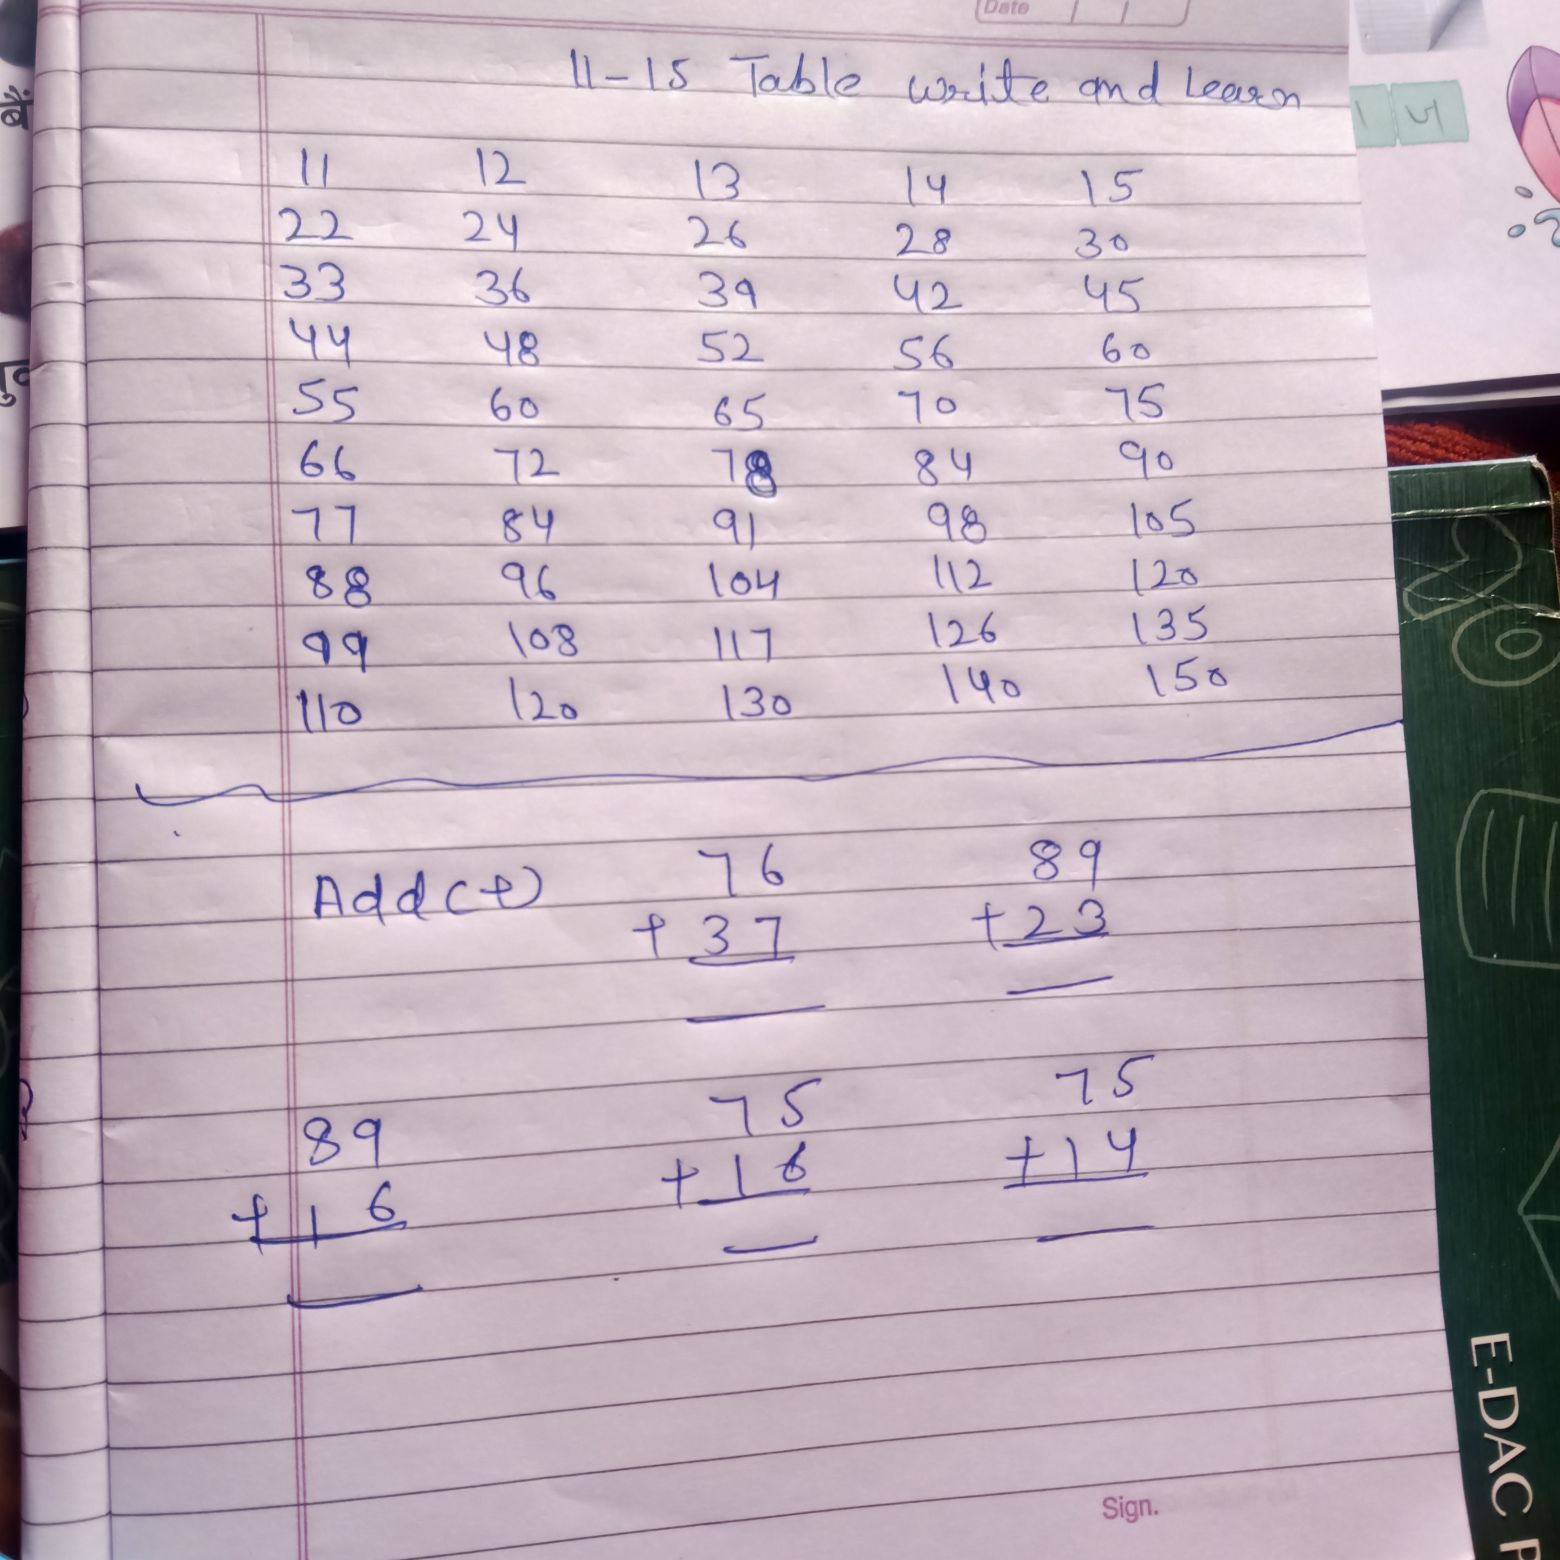 Date
11-15 Table write and Learn
11 12 13 14 15
22 24 26 28 30
33 36 39 42 45
44 48 52 56 60
55 60 65 70 75
66 72 78 84 90
77 84 91 98 105
88 96 104 112 120
99 108 117 126 135
110 120 130 140 150
Add(+) 76 89
+37 +23
89 75 75
+16 +16 +14
Sign.
E-DAC